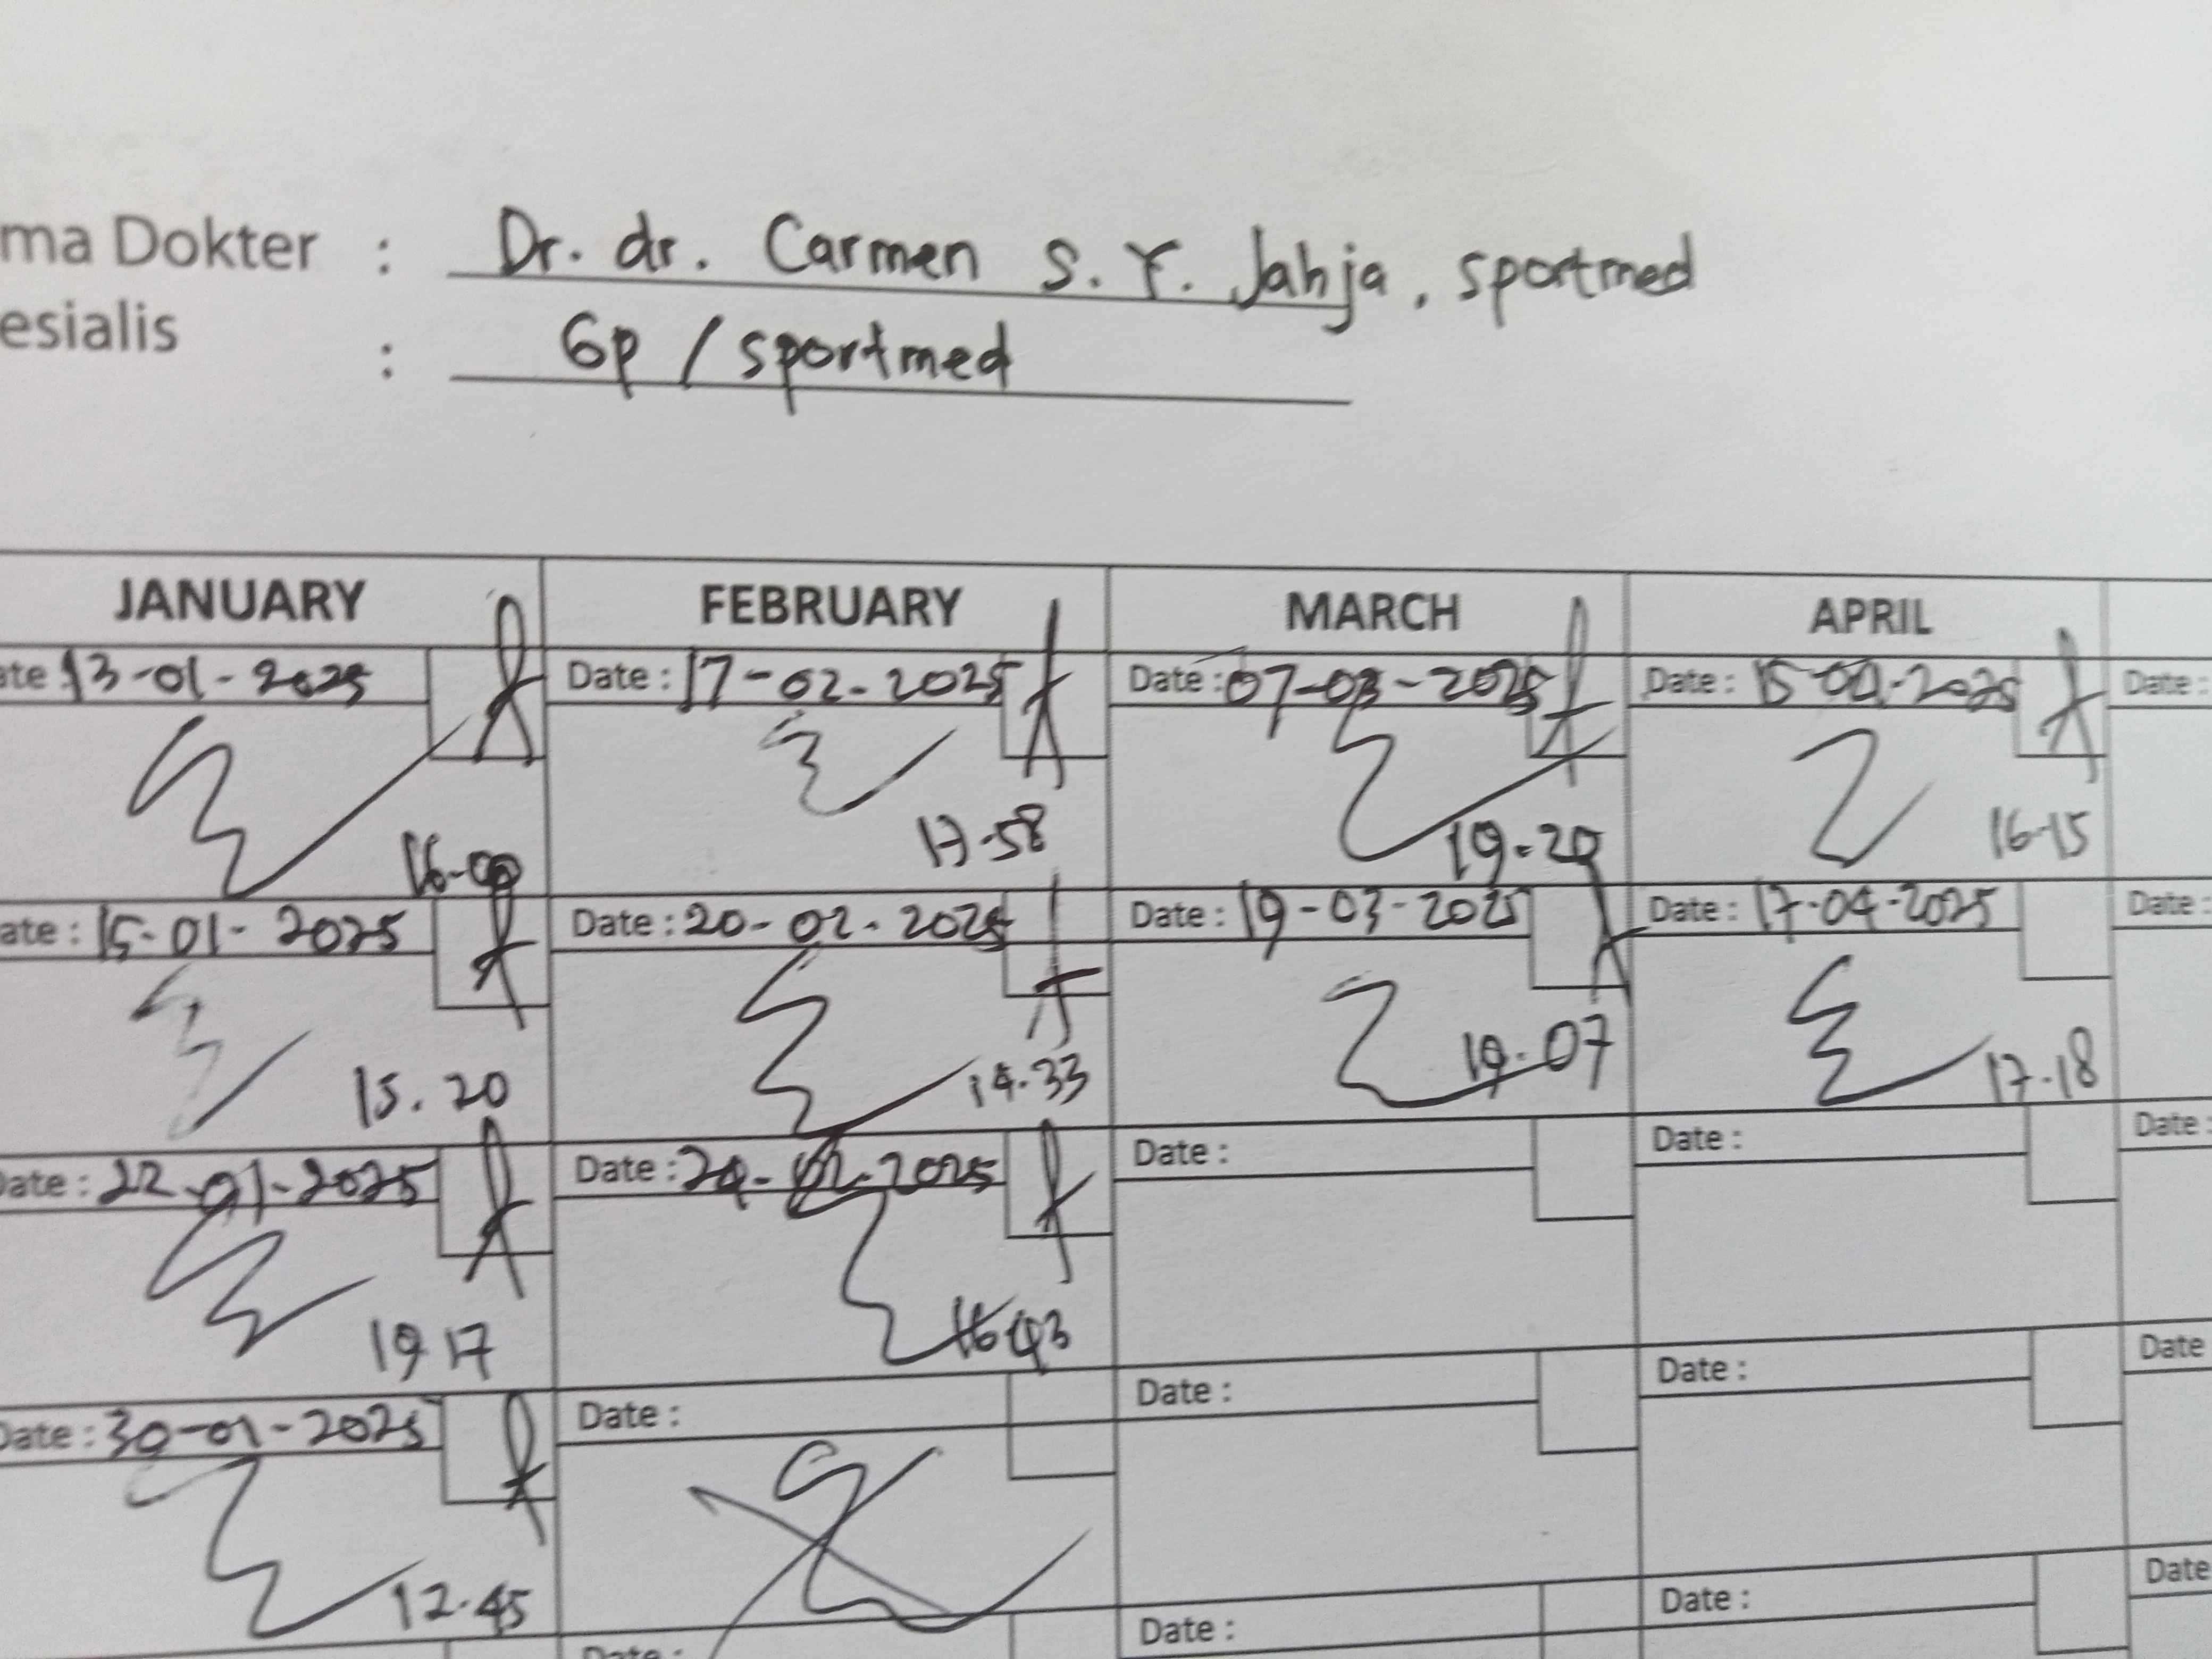 ma Dokter : Dr. dr. Carmen S. Y. Jahja, sportmed
esialis : Gp / sportmed
JANUARY FEBRUARY MARCH APRIL
ate 13-01-2025 Date : 17-02-2025 Date : 07-03-2025 Date : 15-04-2025 Date :
16-00 17.58 19.20 16-15
ate : 15-01-2025 Date : 20-02-2025 Date : 19-03-2025 Date : 17-04-2025 Date :
15.20 14.33 19.07 17-18
Date : 22-01-2025 Date : 24-02-2025 Date : Date : Date :
19 17 16 43
Date : 30-01-2025 Date : Date : Date : Date
12.45
Date : Date : Date : Date